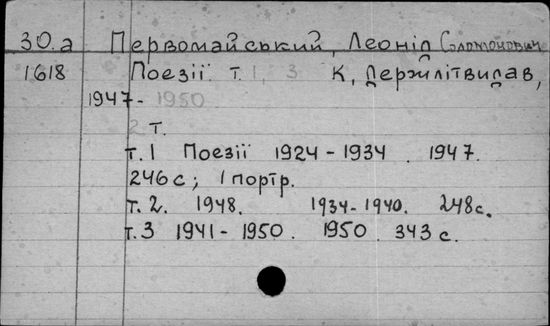 30.а Первомайський, Леонід Соломонович
1618 Поезії. т. 1, 3 К, Держлітвидав,
1947- 1950
2 т.
т. 1 Поезії 1924-1934 . 1947.
246 с; 1 портр.
т. 2. 1948. 1934-1940. 248 с.
т. 3 1941-1950. 1950. 343 с.